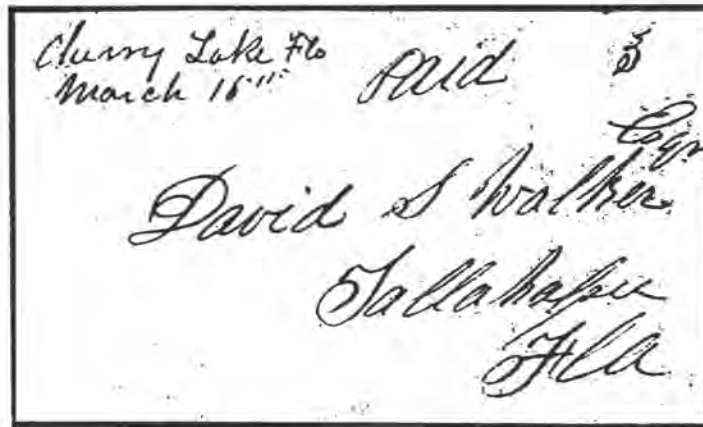 Cherry Lake Flo
March 16th
Paid 5
David S Walker
Tallahassee
Fla